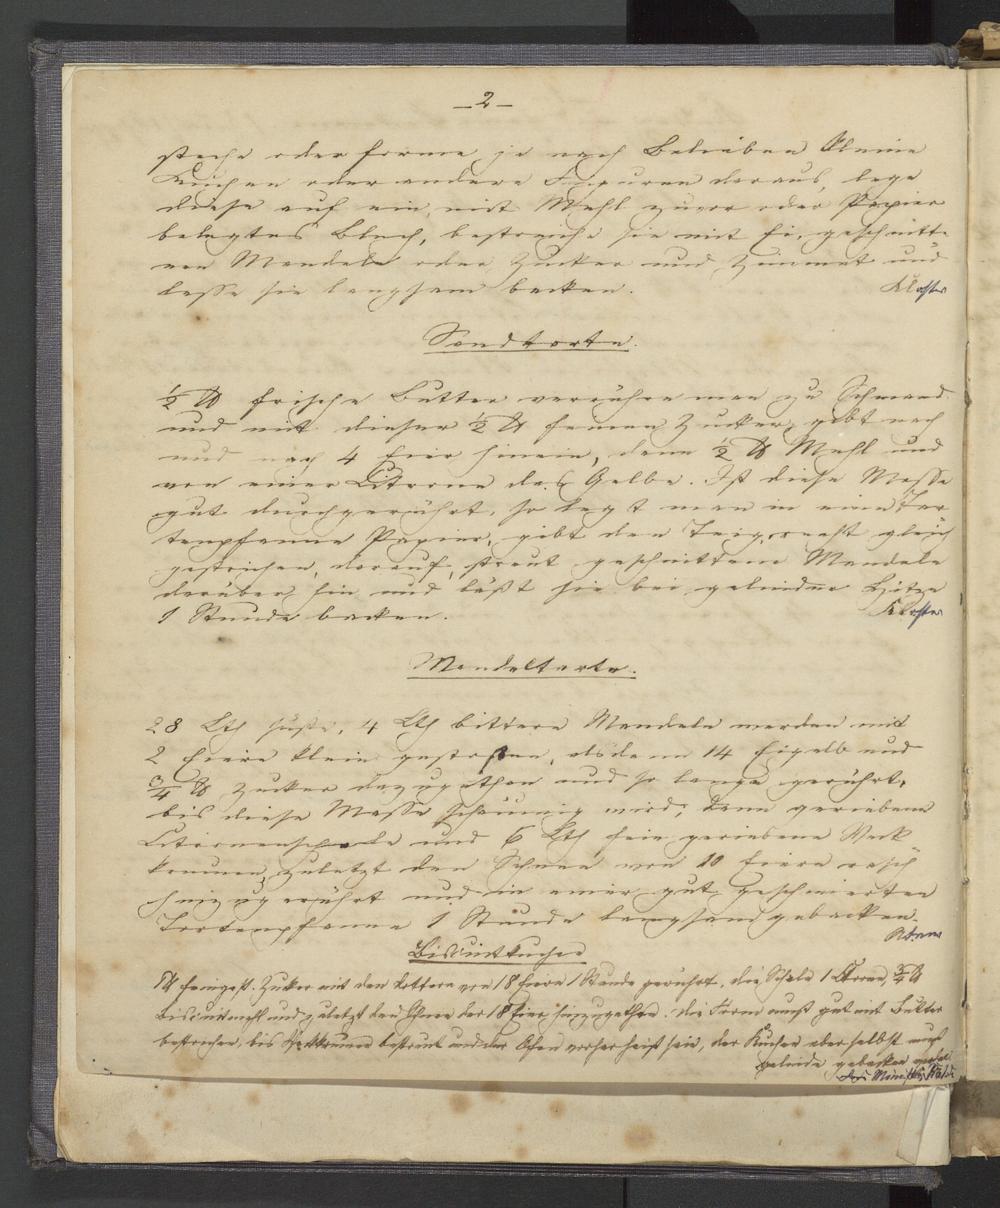 – 2 –
steche oder forme je nach Belieben kleine
Kuchen oder andere Figuren daraus, lege
diese auf ein mit Mehl zuvor oder Papier
belegtes Blech, bestreiche sie mit Ei, geschnitte-
nen Mandeln oder Zucker und Zimmet und
lasse sie langsam backen. Kloster
Sandtorte.
½ ℔ frische Butter verrühre man zu Schmand
und mit dieser ½ ℔ feinen Zucker, gibt nach
und nach 4 Eier hinein, dann ½ ℔ Mehl und
von einer Citrone das Gelbe. Ist diese Masse
gut durchgerührt, so legt man in eine Tor
tenpfanne Papier, gibt den Teig, recht gleich
gestrichen, darauf, streut geschnittene Mandeln
darüber hin und läßt sie bei gelinder Hitze
1 Stunde backen. Kloster
Mandeltorte.
28 Lth süße, 4 Lth bittere Mandeln werden mit
2 Eiern klein gestoßen, alsdann 14 Eigelb und
¾ ℔ Zucker dazu gethan und so lange gerührt,
bis diese Masse schäumig wird; dann geriebene
Citronenschale und 6 Lth fein geriebene Weck
krumen, zuletzt den Schnee von 10 Eiern rasch
hinzugerührt und in einer gut geschmierten
Tortenpfanne 1 Stunde langsam gebacken.
Biscuitkuchen
1 ℔ feingest. Zucker mit den Dottern von 18 Eiern 1 Stunde gerührt, die Schale 1 Citrone, ¾ ℔
Biscuitmehl und zuletzt den Schnee der 18 Eier hinzugethan. Die Form muß gut mit Butter
bestrichen, bis Weckkrumen bestreut und der Ofen vorher heiß sein, der Kuchen aber selbst muß
gelinde gebacken werden